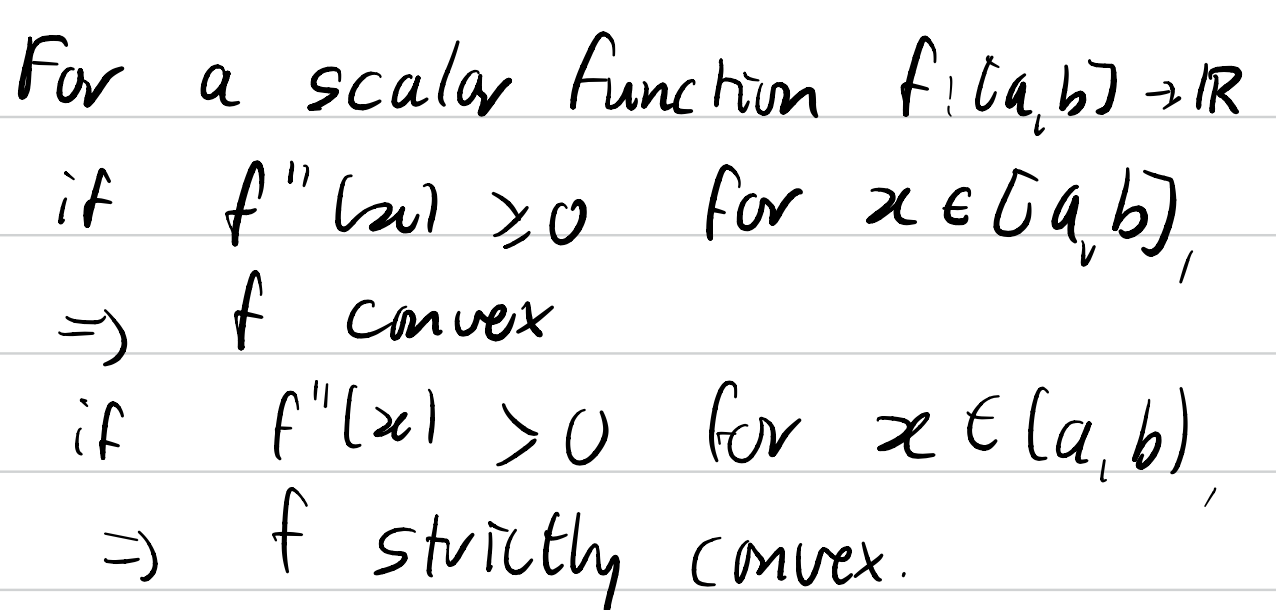 For a scalar function f: [a, b] → ℝ
if f''(x) ⩾ 0 for x ∈ [a, b],
⇒ f convex
if f''(x) > 0 for x ∈ (a, b),
⇒ f strictly convex.